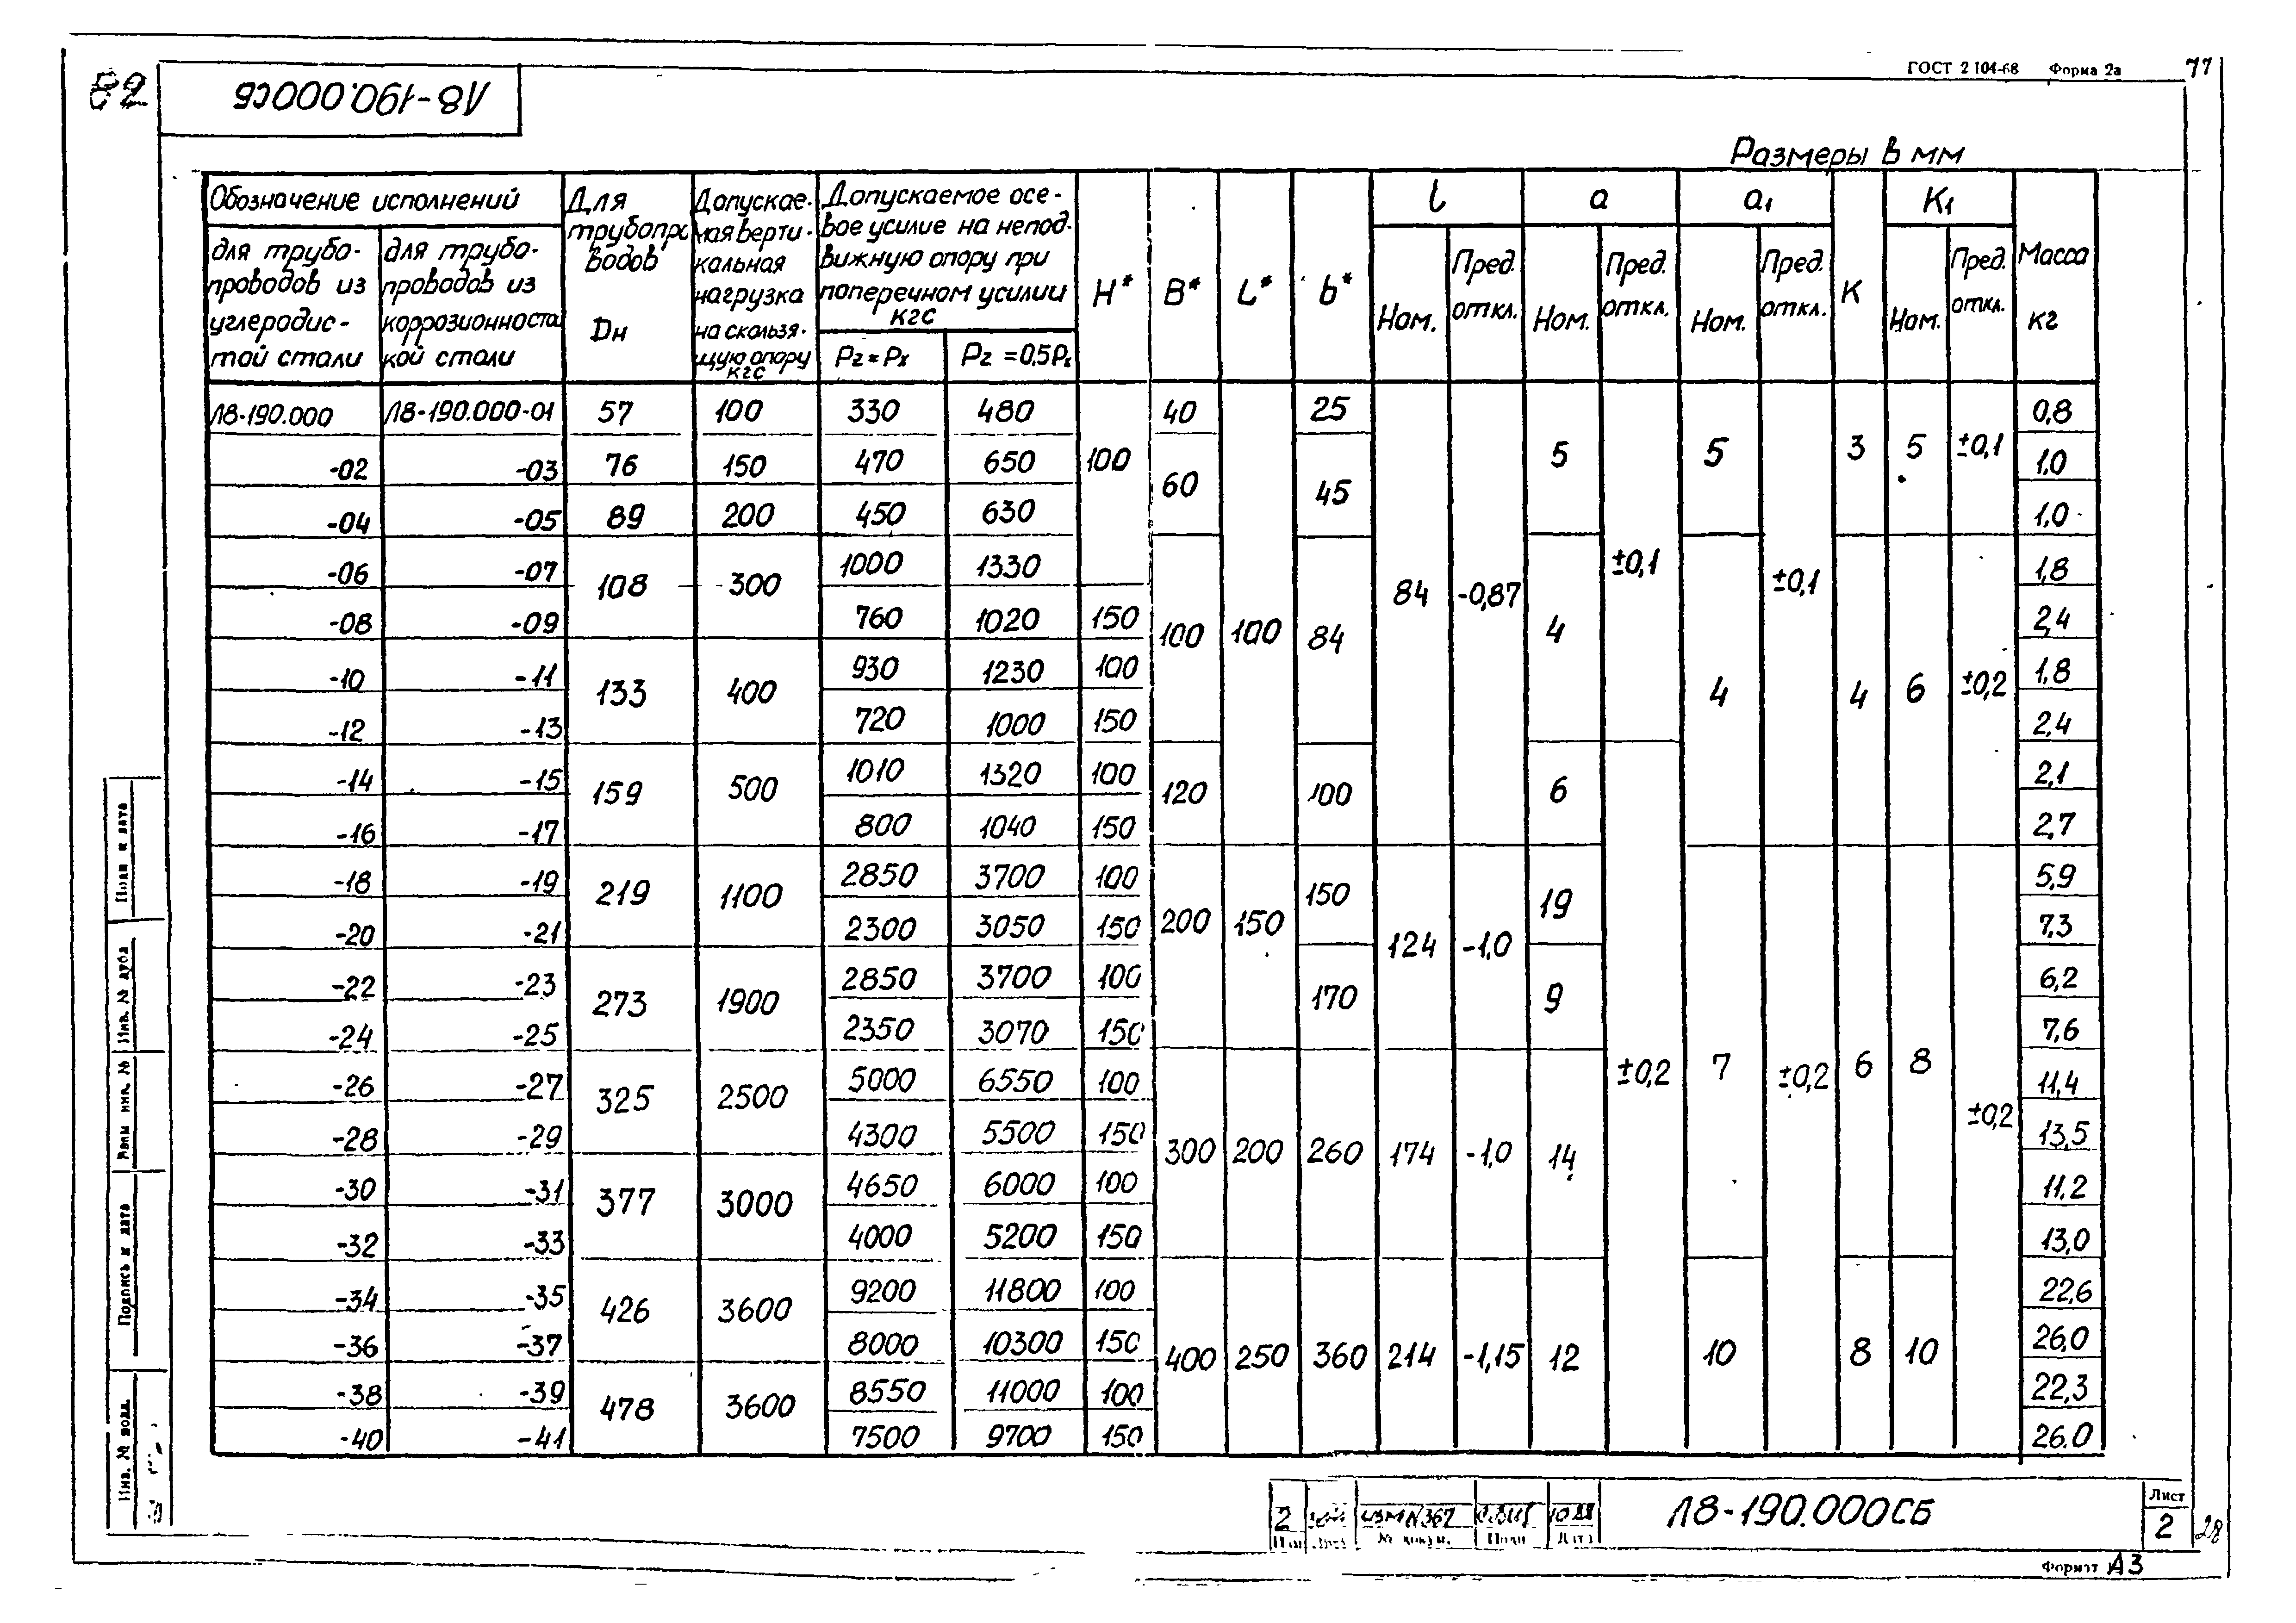 82
Л8-190.000СБ
ГОСТ 2 104-68 Форма 2а
77
Размеры в мм
Обозначение исполнений
для трубо-
проводов из
углеродис-
той стали
для трубо-
проводов из
коррозионностой
кой стали
Для
трубопро
водов
Dн
Допускае-
мая верти-
кальная
нагрузка
на скользя-
щую опору
кгс
Допускаемое осе-
вое усилие на непод-
вижную опору при
поперечном усилии
кгс
Pz = Px
Pz = 0,5Px
H*
B*
L*
b*
l
Ном.
Пред. откл.
a
Ном.
Пред. откл.
a1
Ном.
Пред. откл.
K
K1
Ном.
Пред. откл.
Масса
кг
Л8-190.000 Л8-190.000-01 57 100 330 480 100 40 100 25 84 -0,87 5 ±0,1 5 ±0,1 3 5 ±0,1 0,8
-02 -03 76 150 470 650 60 45 1,0
-04 -05 89 200 450 630 1,0
-06 -07 108 300 1000 1330 100 84 4 4 4 6 ±0,2 1,8
-08 -09 760 1020 150 2,4
-10 -11 133 400 930 1230 100 1,8
-12 -13 720 1000 150 2,4
-14 -15 159 500 1010 1320 100 120 100 6 2,1
-16 -17 800 1040 150 2,7
-18 -19 219 1100 2850 3700 100 200 150 150 124 -1,0 19 ±0,2 7 ±0,2 6 8 ±0,2 5,9
-20 -21 2300 3050 150 7.3
-22 -23 273 1900 2850 3700 100 170 9 6,2
-24 -25 2350 3070 150 7,6
-26 -27 325 2500 5000 6550 100 300 200 260 174 -1,0 14 11,4
-28 -29 4300 5500 150 13,5
-30 -31 377 3000 4650 6000 100 11.2
-32 -33 4000 5200 150 13,0
-34 -35 426 3600 9200 11800 100 400 250 360 214 -1,15 12 10 8 10 22,6
-36 -37 8000 10300 150 26,0
-38 -39 478 3600 8550 11000 100 22,3
-40 -41 7500 9700 150 26.0
Подп и дата
Инв. № дубл
Взам инв. №
Подпись и дата
Инв. № подл.
2 изм N367 10 88
№ докум. Подп Дата
Л8-190.000СБ
Лист
2
28
Формат А3